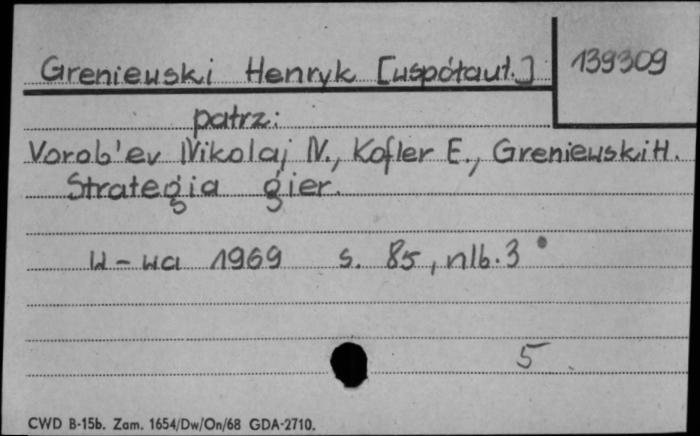 Greniewski Henryk [współaut.] 139309
patrz:
Vorob'ev Nikolaj N., Kofler E., Greniewski H.
Strategia gier.
W-wa 1969 s. 85, nlb. 3
5
CWD B-15b. Zam. 1654/Dw/On/68 GDA-2710.